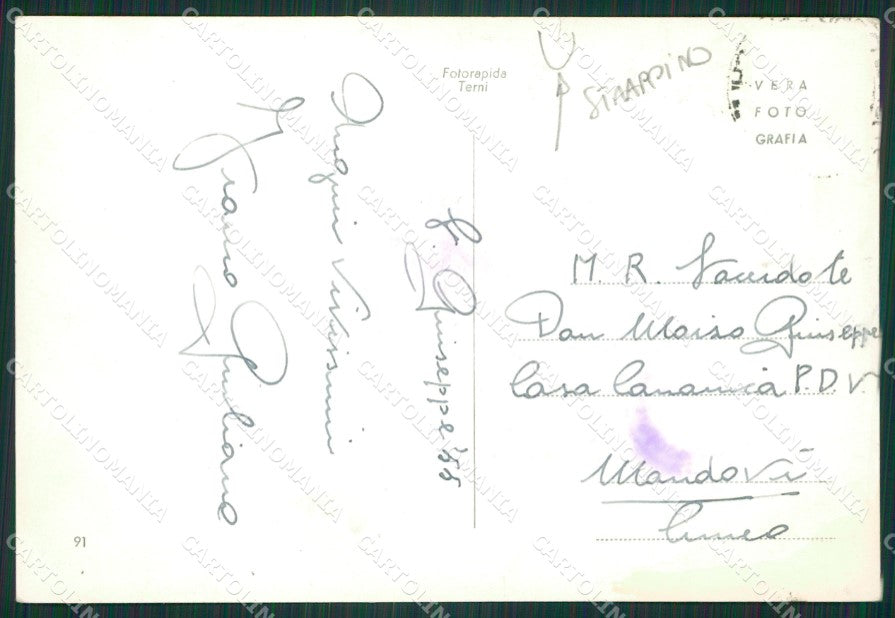 Fotorapida
Terni
STRAPPINO
VERA
FOTO
GRAFIA
S. Giuseppe '55
Auguri Vivissimi
Franco Giuliano
M. R. Sacerdote
Don Maiso Giuseppe
Casa Canonica P.D.V.
Mondovì
Cuneo
91
CARTOLINOMANIA